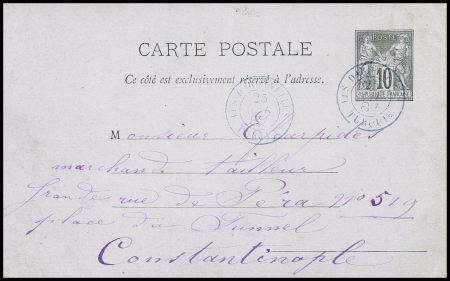 CARTE POSTALE
Ce côté est exclusivement réservé à l'adresse.
POSTE
10
RÉPUBLIQUE FRANÇAISE
25
TURQUIE
M onsieur
marchand tailleur
grande rue de Péra No 519
place du Tunnel
Constantinople